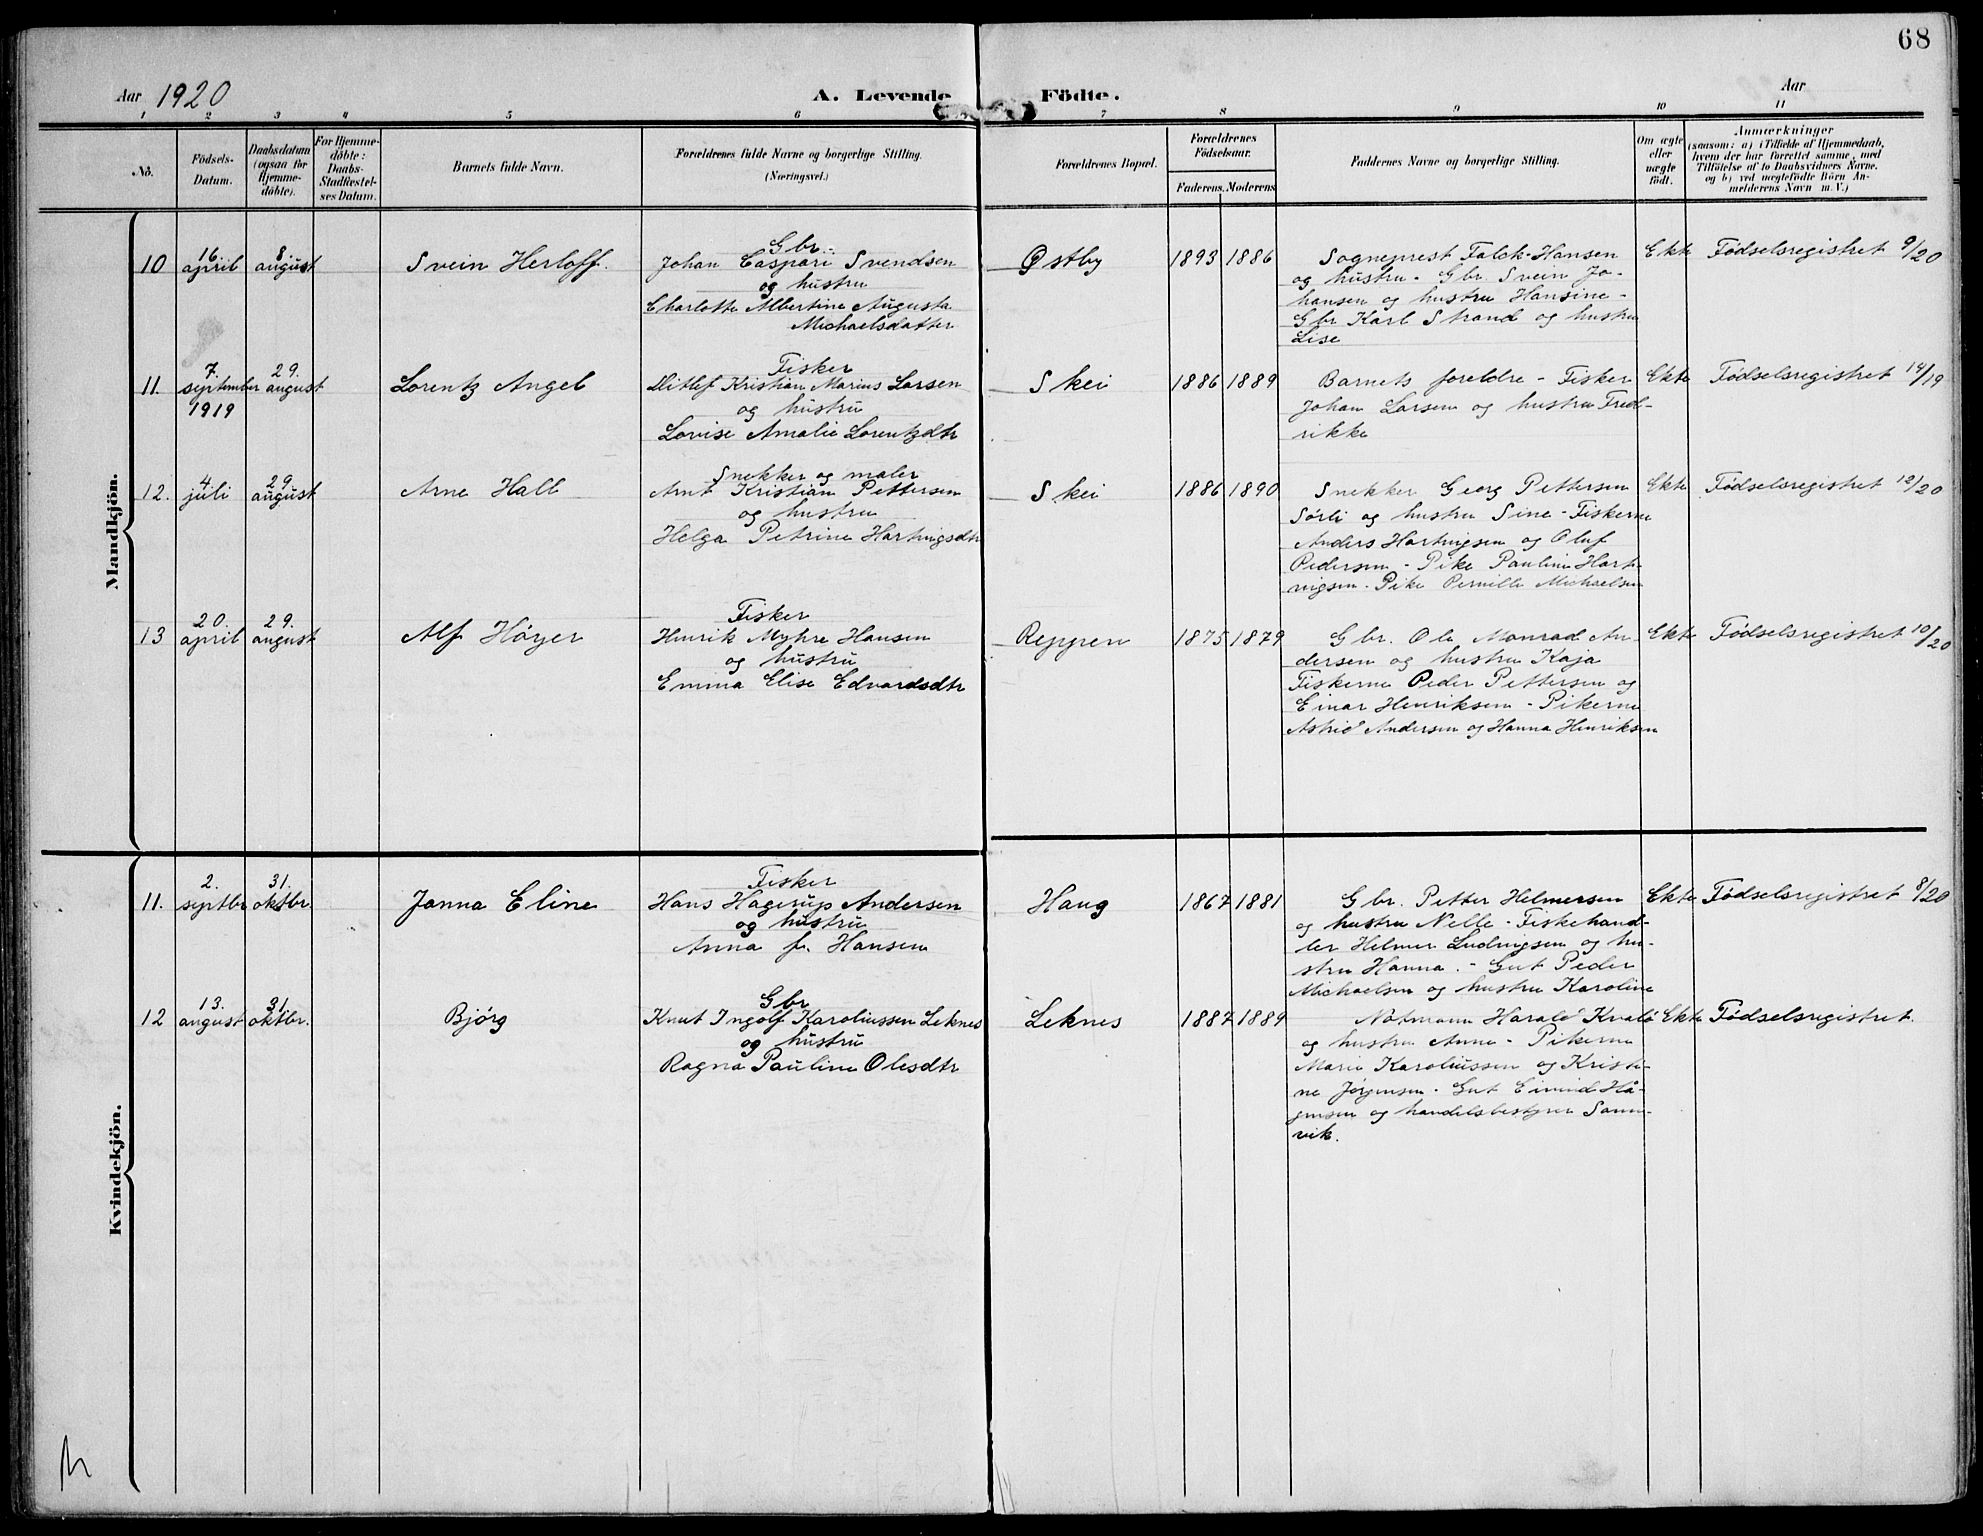 68
Aar 1920
A. Levende Födte.
Aar
1 2 3 4 5 6 7 8 9 10 11
No.
Födsels-Datum.
Daabsdatum (ogsaa for Hjemme-döbte).
For Hjemme-döbte: Daabs-Stadfestel-ses Datum.
Barnets fulde Navn.
Forældrenes fulde Navne og borgerlige Stilling.
(Næringsvei.)
Forældrenes Bopæl.
Forældrenes Födselsaar.
Faderens. Moderens
Faddernes Navne og borgerlige Stilling.
Om ægte eller uægte födt.
Anmærkninger
(saasom: a) i Tilfælde af Hjemmedaab,
hvem der har forrettet samme, med
Tilföielse af to Daabsvidners Navne.
og b) ved uægtefödte Börn An-
melderens Navn m. V.)
Mandkjön.
10 16 april 8 august Svein Herloff.
Gbr.
Johan Caspari Svendsen
og hustru
Charlotte Albertine Augusta
Michaelsdatter
Østby 1893 1886
Sogneprest Falck-Hansen
og hustru - Gbr. Svein Jo-
hansen og hustru Hansine -
Gbr Karl Strand og hustru
Lise
Ekte Fødselsregistret 9/20
11. 7. september 1919 29. august Lorentz Angel
Fisker
Ditlef Kristian Marius Larsen
og hustru
Lovise Amalie Lorentzdtr
Skei 1886 1889
Barnets foreldre - Fisker
Johan Larsen og hustru Fred-
rikke
Ekte Fødselsregistret 14/19
12. 4 juli 29. august Arne Hall
Snekker og maler
Arnt Kristian Pettersen
og hustru
Helga Petrine Hartvigsdtr
Skei 1886 1890
Snekker Georg Pettersen
Sørli og hustru Sine - Fiskerne
Anders Hartvigsen og Oluf
Pedersen - Pike Pauline Hart-
vigsen - Pike Pernille Michaelsen
Ekte Fødselsregistret 12/20
13 20. april 29. august Alf Høyer
Fisker
Henrik Myhre Hansen
og hustru
Emma Elise Edvardsdtr
Reppen 1875 1879
Gbr. Ole Monrad An-
dersen og hustru Kaja
Fiskerne Peder Pettersen og
Einar Henriksen - Pikerne
Astrid Andersen og Hanna Henriksen
Ekte Fødselsregistret 10/20
Kvindekjön.
11. 2. septbr 31. oktbr. Janna Eline
Fisker
Hans Hagerup Andersen
og hustru
Anna f. Hansen
Haug 1867 1881
Gbr. Petter Helmersen
og hustru Nelle - Fiskehand-
ler Helmer Ludvigsen og hu-
stru Hanna. - Gut Peder
Michaelsen og hustru Karoline
Ekte Fødselsregistret 8/20
12 13. august 31. oktbr. Bjørg
Gbr
Knut Ingolf Karoliussen Leknes
og hustru
Ragna Pauline Olesdtr
Leknes 1887 1889
Notmann Harald Kvalø
og hustru Anne - Pikerne
Marie Karoliussen og Kristi-
ne Jørgensen - Gut Eivind Hå-
gensen og handelsbestyrer Sann-
vik.
Ekte Fødselsregistret.